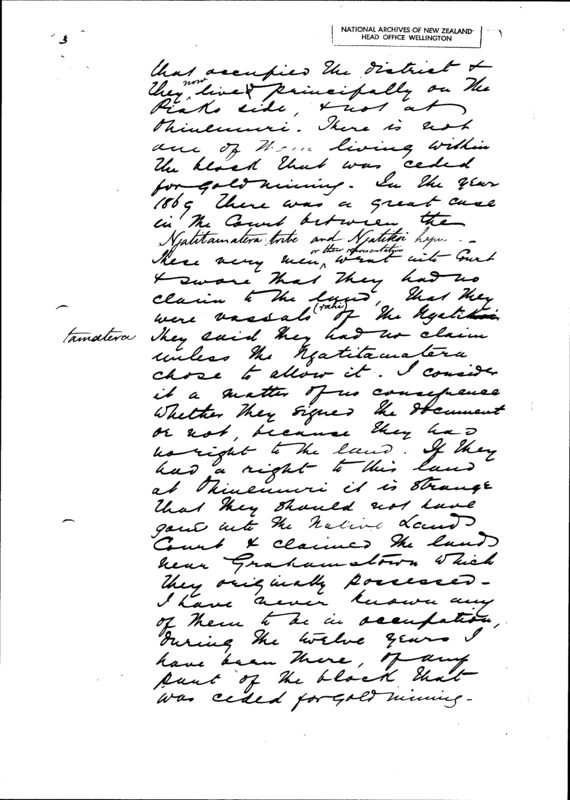 3
NATIONAL ARCHIVES OF NEW ZEALAND
HEAD OFFICE WELLINGTON
that occupied the district &
they now live principally on the
Piako side, & not at
Ohinemuri. There is not
one of them living within
the block that was ceded
for gold mining. In the year
1869 there was a great case
in the Court between the
Ngatitamatera tribe and Ngatikoi hapu. -
These very men, or their representatives went into Court
& swore that they had no
claim to the land, that they
were vassals of the Ngati
tamatera They said they had no claim
unless the Ngatitamatera
chose to allow it. I consider
it a matter of no consequence
whether they signed the document
or not, because they had
no right to the land. If they
had a right to this land
at Ohinemuri it is strange
that they should not have
gone into the Native Land
Court & claimed the land
near Grahamstown which
they originally possessed -
I have never known any
of them to be in occupation,
during the twelve years I
have been there, of any
part of the block that
was ceded for gold mining -